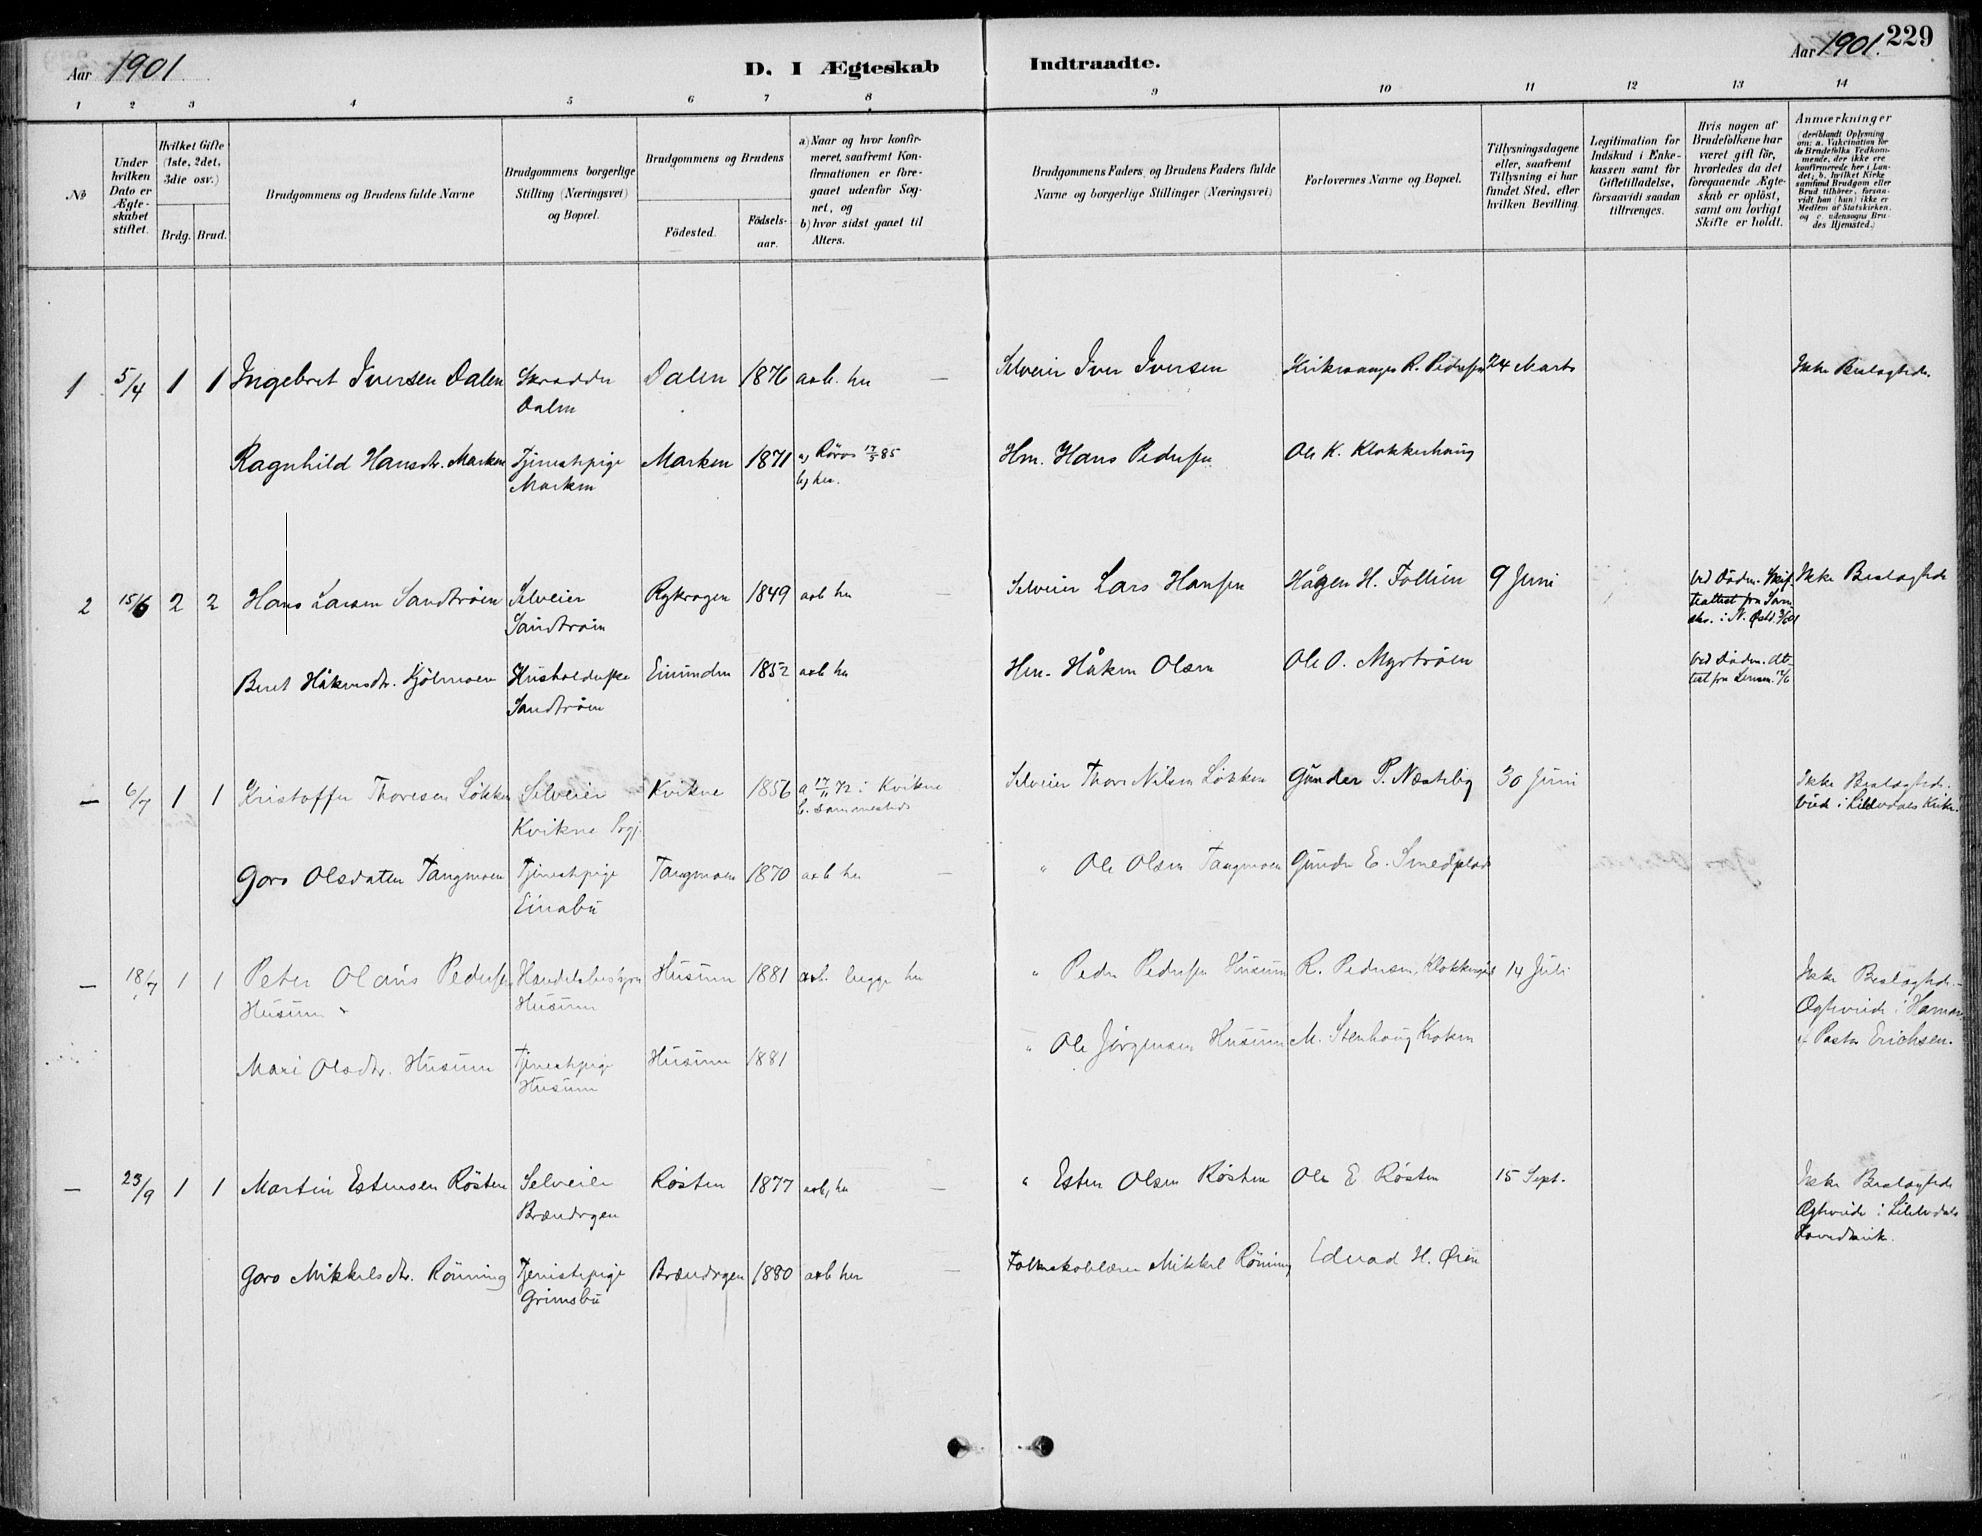 Aar 1901
D. I Ægteskab Indtraadte.
Aar 1901. 229
1 2 3 4 5 6 7 8 9 10 11 12 13 14
№
Under hvilken Dato er Ægte-skabet stiftet.
Hvilket Gifte (1ste, 2det, 3die osv.)
Brdg. Brud.
Brudgommens og Brudens fulde Navne
Brudgommens borgerlige Stilling (Næringsvei) og Bopæl.
Brudgommens og Brudens
Födested. Födsels-aar.
a) Naar og hvor konfir-meret, saafremt Kon-firmationen er fore-gaaet udenfor Sog-net, og
b) hvor sidst gaaet til Alters.
Brudgommens Faders, og Brudens Faders fulde Navne og borgerlige Stillinger (Næringsvei)
Forlovernes Navne og Bopæl.
Tillysningsdagene eller, saafremt Tillysning ei har fundet Sted, efter hvilken Bevilling.
Legitimation for Indskud i Enke-kassen samt for Giftetilladelse, forsaavidt saadan tiltrænges.
Hvis nogen af Brudefolkene har været gift för, hvorledes da det foregaaende Ægte-skab er oplöst, samt om lovligt Skifte er holdt.
Anmærkninger
(deriblandt Oplysning om: a. Vakcination for de Brudefolks Vedkom-mende, der ikke ere konfirmerede her i Lan-det, b. hvilket Kirke-samfund Brudgom eller Brud tilhörer, forsaa-vidt han (hun) ikke er Medlem af Statskirken, og c. udensogns Bru-des Hjemsted.)
1 5/4 1 1 Ingebret Iversen Dalen Skrædder Dalen 1876 a&b. her — Selveier Iver Iversen Kirkesanger R. Pedersen 24 Marts Ikke Beslægtede.
Dalen
Ragnhild Hansdtr. Marken Tjenestepige Marken 1871 a) Røros 17/5 85 Hm. Hans Pedersen Ole K. Klokkerhaug
Marken b) her.
2 15/6 2 2 Hans Larsen Sandtrøen Selveier 1849 a&b her — Selveier Lars Hansen Hågen H. Follien 9 Juni Ved Døden. Skif- Ikke Beslægtede
Sandtrøen teattest fra Sorn
skr. i N. Østd.
Beret Håkensdtr. Kjölmoen Husholderske Einunden 1852 a&b her Hm. Håken Olsen Ole O. Myrtrøen Ved Døden. At-
Sandtrøen test fra Lensm.
— 6/7 1 1 Kristoffer Thoresen Løkken Selveier Kvikne 1856 a 17/11 72 i Kvikne Selveier Thore Nilsen Løkken Gunder P. Næsteby 30 Juni Ikke Beslægtede.
Kvikne Prgj. b. sammesteds Viede i Lilleelvdals Kirke.
Goro Olsdatter Tangmoen Tjenestepige Tangmoen 1870 a&b her — " Ole Olsen Tangmoen Gunder E. Smedplads
Einabu
— 18/7 1 1 Peter Olaus Pedersen Handelsbestyrer Husum 1881 a&b. begge her " Peder Pedersen Husum R. Pedersen, Klokkergrd 14 Juli Ikke Beslægtede.
Husum Husum Ægteviede i Hamar
Mari Olsdtr. Husum Tjenestepige Husum 1881 " Ole Jørgensen Husum M. Stenhaug Kroken af Pastor Erichsen.
Husum
— 23/9 1 1 Martin Estensen Røsten Selveier Røsten 1877 a&b, her — " Esten Olsen Røsten Ole E Røsten 15 Sept. Ikke Beslægtede
Brændvgen Ægteviede i Lilleelvdals
Hovedkirk.
Goro Mikkelsdtr. Rönning Tjenestepige Brændvgen 1880 a&b her Folkeskolelærer Mikkel Rönning Edvard H. Øien
Grimsbu